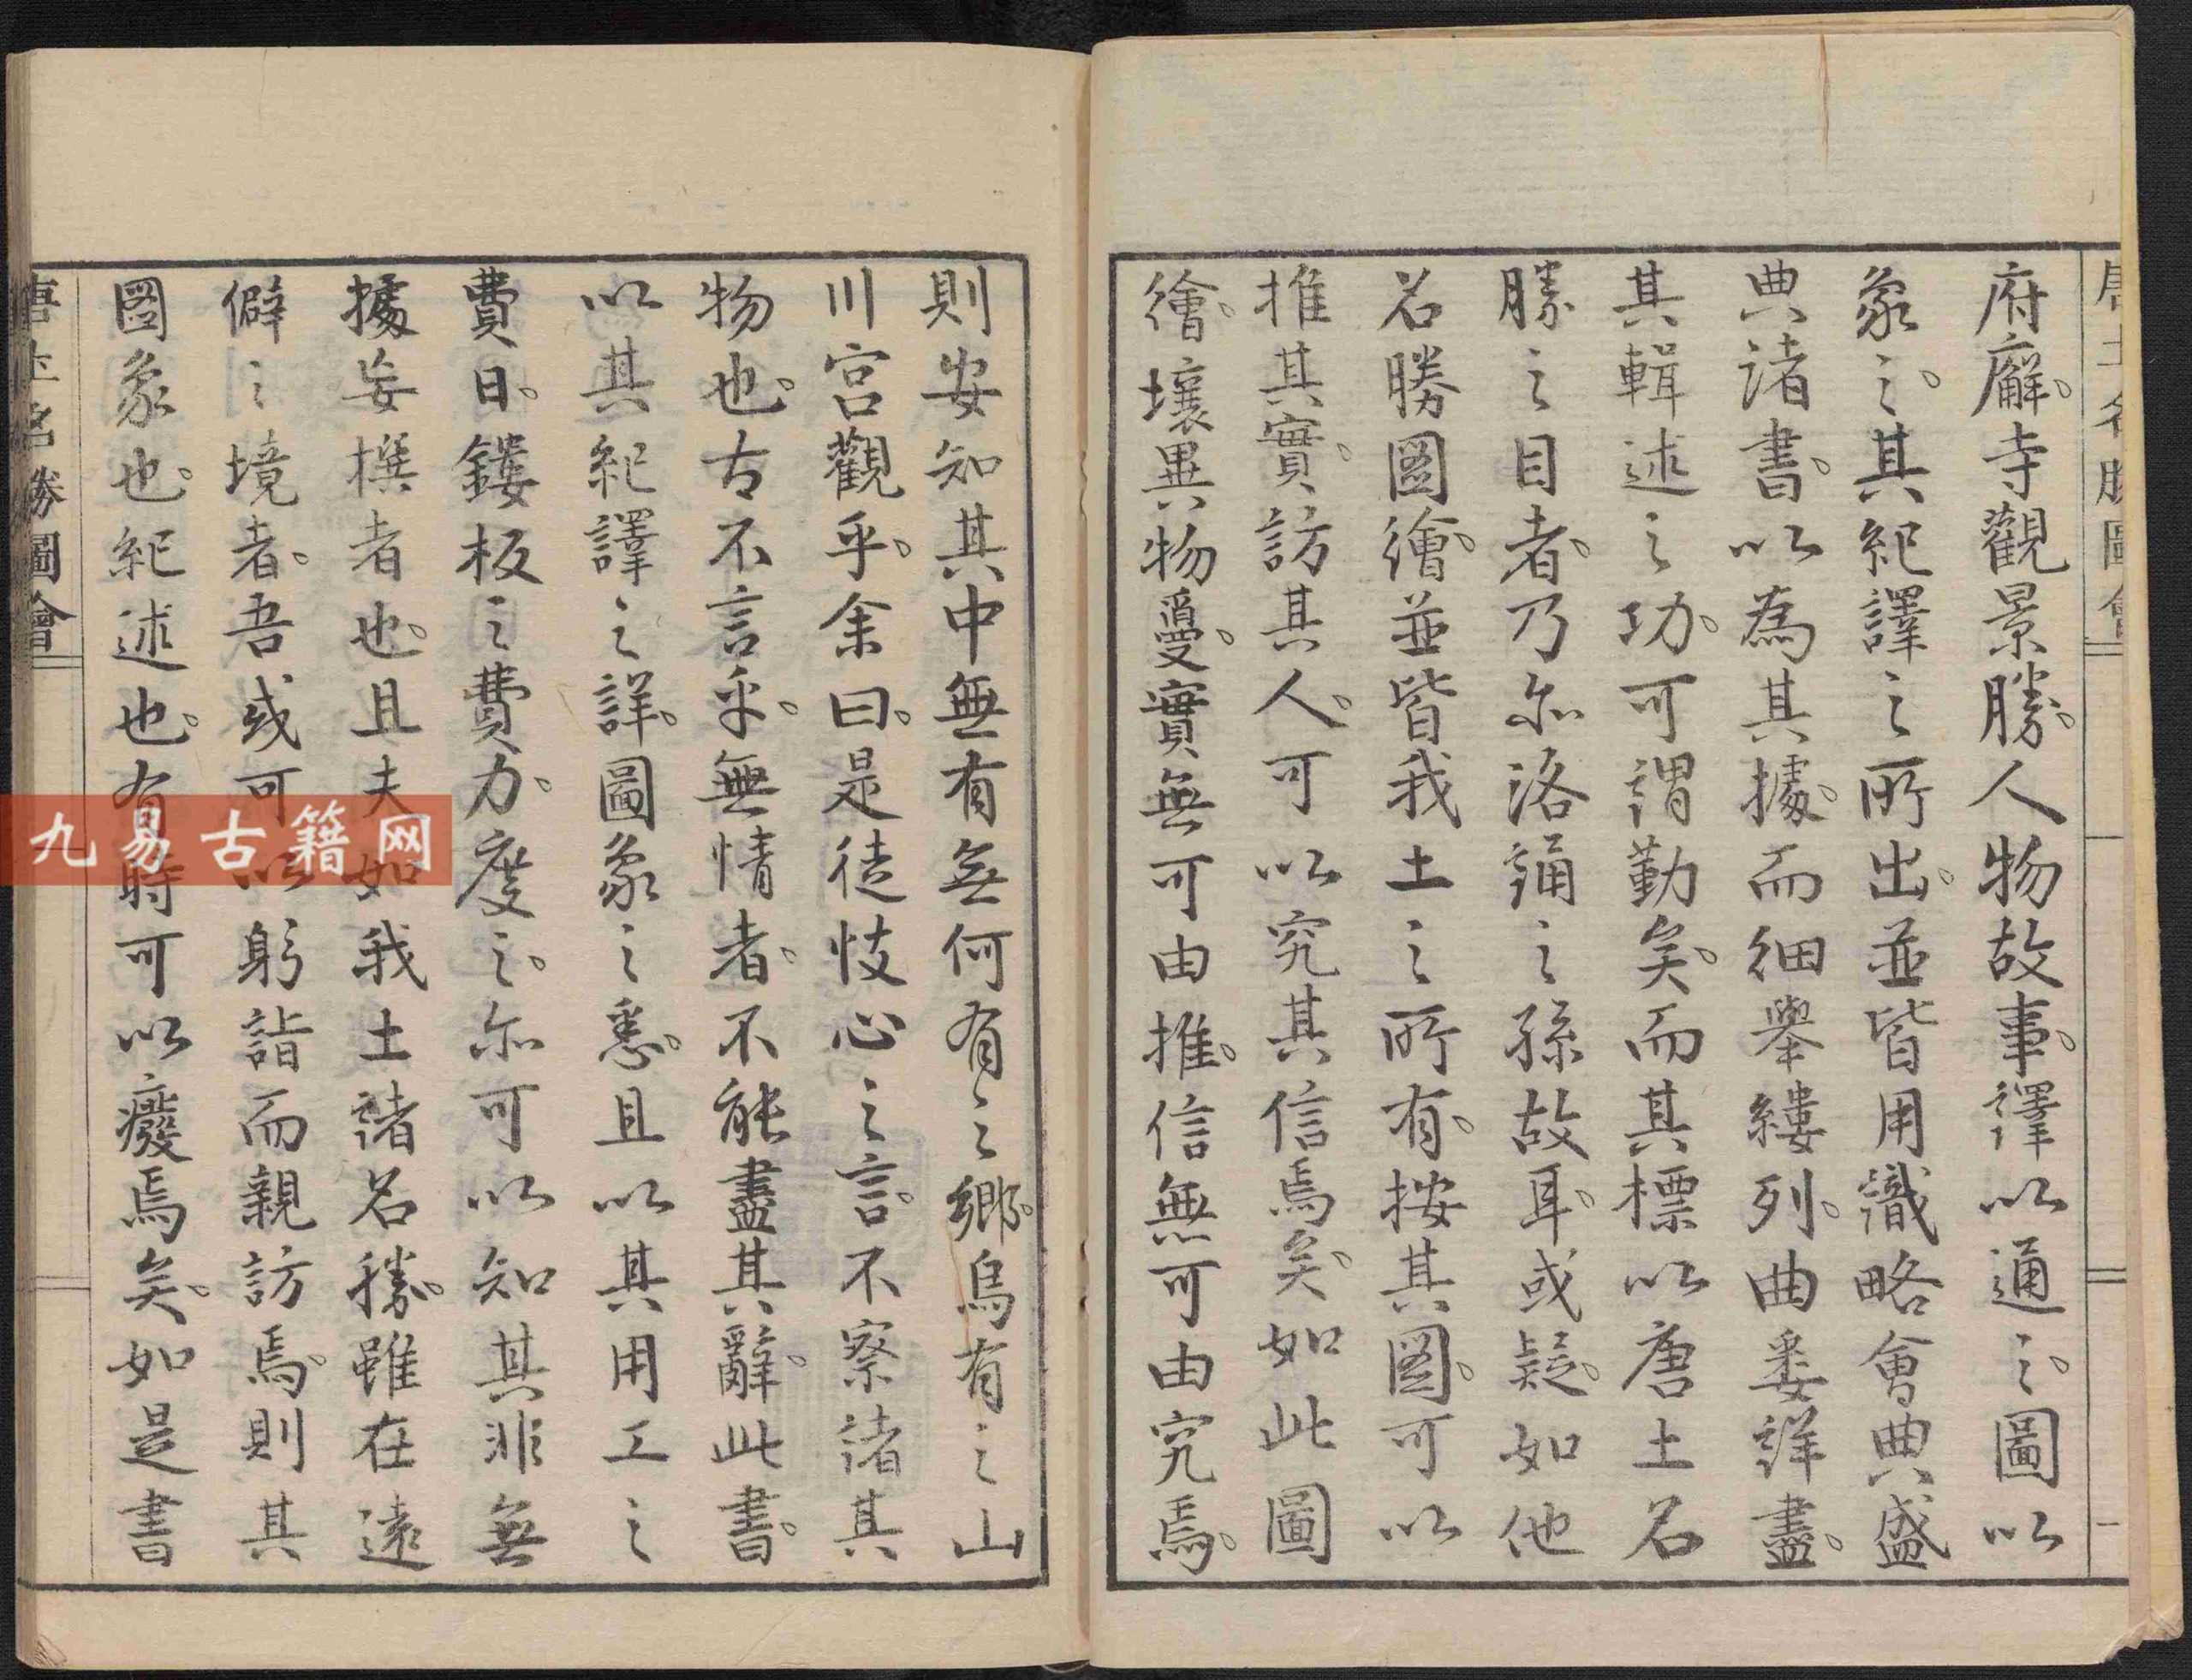 唐土名勝圖會
一
府廨。寺觀景勝。人物故事。譯以通之。圖以
象之。其紀譯之所出。並皆用識略會典盛
典諸書。以為其據。而細舉縷列。曲委詳盡。
其輯述之功。可謂勤矣。而其標以唐土名
勝之目者。乃尓洛誦之孫故耳。或疑。如他
名勝圖繪。並皆我土之所有。按其圖。可以
推其實。訪其人。可以究其信焉矣。如此圖
繪。壤異物夐。實無可由推。信無可由究焉。
則安知其中無有無何有之鄉。烏有之山
川宮觀乎。余曰。是徒忮心之言。不察諸其
物也。古不言乎。無情者。不能盡其辭。此書。
以其紀譯之詳。圖象之悉。且以其用工之
費日。鏤板之費力。度之。尓可以知其非無
據妄撰者也。且夫如我土諸名勝。雖在遠
僻之境者。吾或可以躬詣而親訪焉。則其
圖象也。紀述也。有時可以癈焉矣。如是書
唐土名勝圖會
九易古籍网